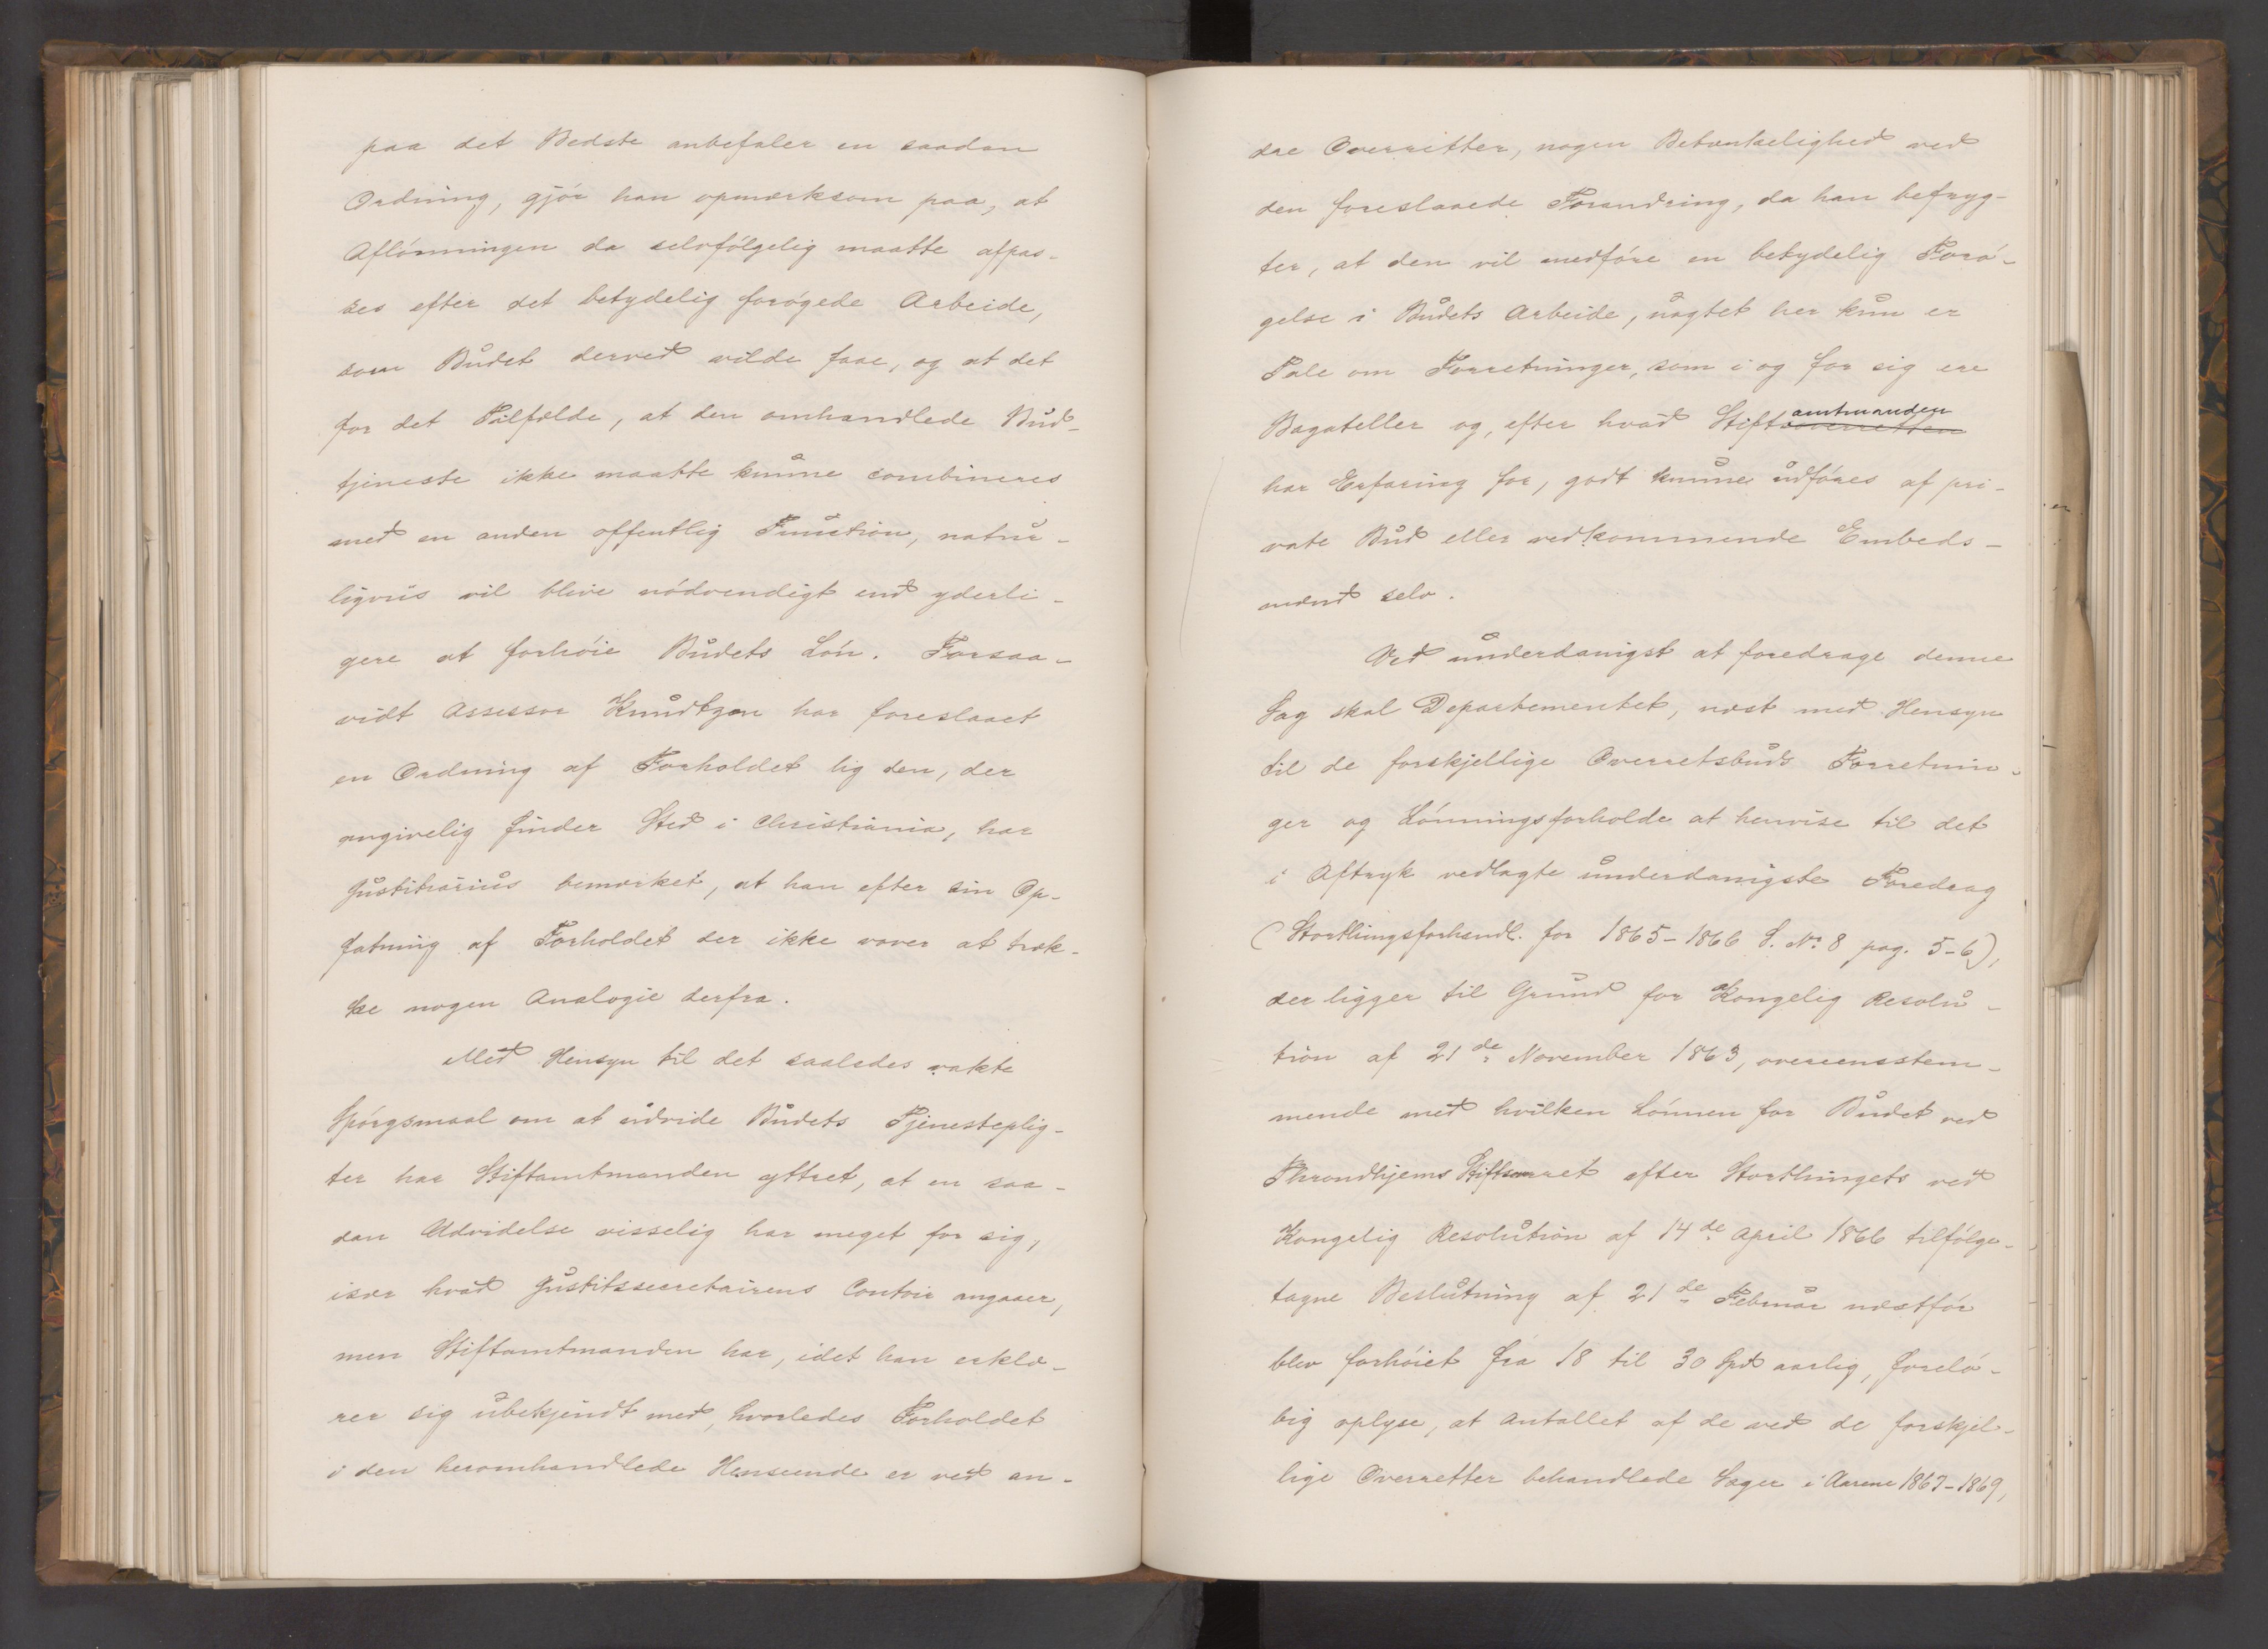 paa det Bedste anbefaler en saadan
Ordning, gjör han opmærksom paa, at
Aflönningen da selvfölgelig maatte afpas-
ses efter det betydelig forögede Arbeide,
som Budet derved vilde faae, og at det
for det Tilfælde, at den omhandlede Bud-
tjeneste ikke maatte kunne combineres
med en anden offentlig Function, natur-
ligviis vil blive nödvendigt end yderli-
gere at forhöie Budets Lön. Forsaa-
vidt Assessor Knudtzon har foreslaaet
en Ordning af Forholdet lig den, der
angivelig finder Sted i Christiania, har
Justitiarius bemærket, at han efter sin Op-
fatning af Forholdet der ikke vover at træk-
ke nogen Analogie derfra.
Med Hensyn til det saaledes vakte
Spörgsmaal om at udvide Budets Tjenesteplig-
ter har Stiftamtmanden yttret, at en saa-
dan Udvidelse visselig har meget for sig,
især hvad Justitssecretairens Contoir angaaer,
men Stiftamtmanden har, idet han erklæ-
rer sig ubekjendt med, hvorledes Forholdet
i den heromhandlede Henseende er ved an-
dre Overretter, nogen Betænkelighed ved
den foreslaaede Forandring, da han befryg-
ter, at den vil medföre en betydelig Forö-
gelse i Budets Arbeide, uagtet her kun er
Tale om Forretninger, som i og for sig ere
Bagateller og, efter hvad Stiftsoverretten amtmanden
har Erfaring for, godt kunne udföres af pri-
vate Bud eller vedkommende Embeds-
mænd selv.
Ved underdanigst at foredrage denne
Sag skal Departementet, næst med Hensyn
til de forskjellige Overretsbuds Forretnin-
ger og Lönningsforholde at henvise til det
i Aftryk vedlagte underdanigste Foredrag
(Storthingsforhandl. for 1865-1866 S. No 8 pag. 5-6),
der ligger til Grund for Kongelig Resolu-
tion af 21de November 1863, overeensstem-
mende med hvilken Lönnen for Budet ved
Throndhjems Stiftsoverret efter Storthingets ved
Kongelig Resolution af 14de April 1866 tilfölge-
tagne Beslutning af 21de Februar næstför
blev forhöiet fra 18 til 30 Spd aarlig, forelö-
big oplyse, at Antallet af de ved de forskjel-
lige Overretter behandlede Sager i Aarene 1867-1869,